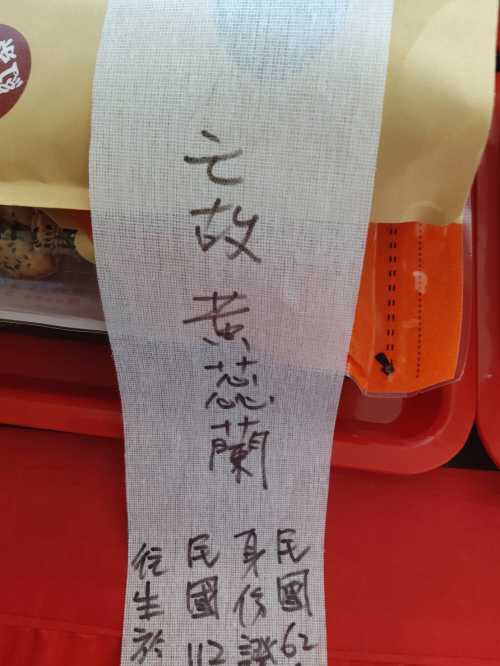 亡故 黃蕊蘭
民國62
身份證
民國112
往生於